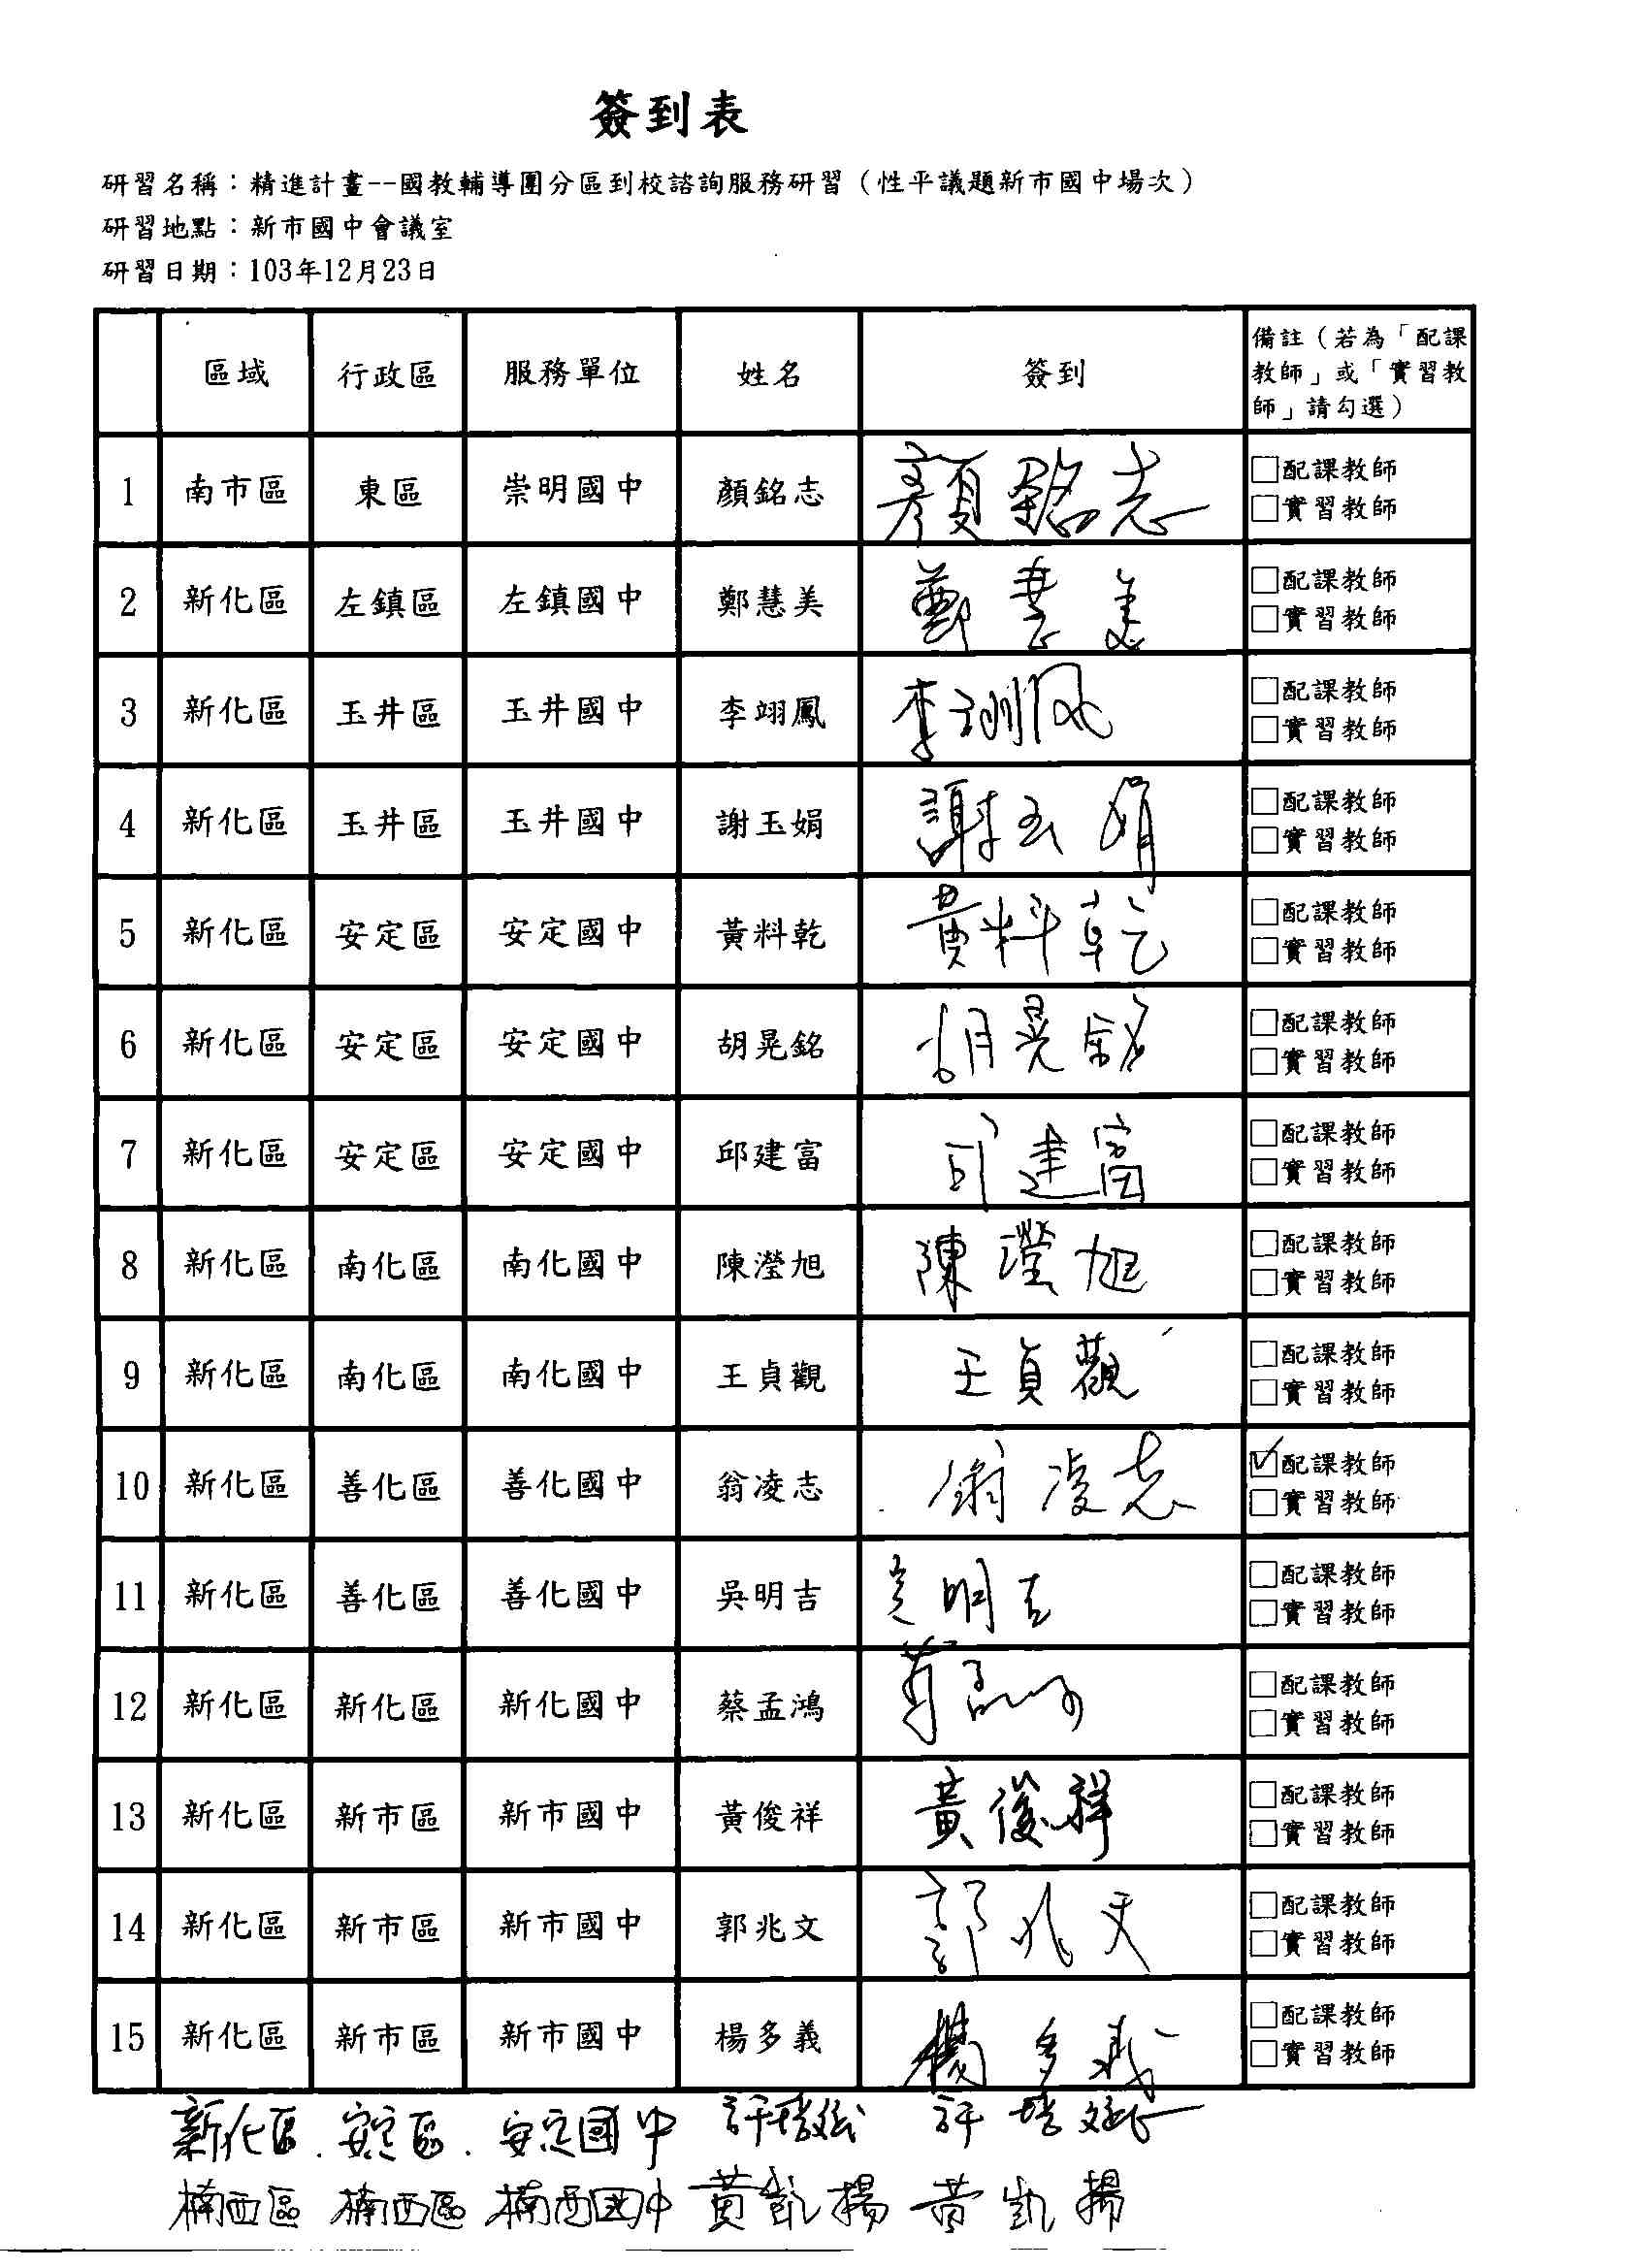 簽到表
研習名稱：精進計畫--國教輔導團分區到校諮詢服務研習（性平議題新市國中場次）
研習地點：新市國中會議室
研習日期：103年12月23日
區域 行政區 服務單位 姓名 簽到 備註（若為「配課教師」或「實習教師」請勾選）
1 南市區 東區 崇明國中 顏銘志 顏銘志 □配課教師 □實習教師
2 新化區 左鎮區 左鎮國中 鄭慧美 鄭慧美 □配課教師 □實習教師
3 新化區 玉井區 玉井國中 李翊鳳 李翊鳳 □配課教師 □實習教師
4 新化區 玉井區 玉井國中 謝玉娟 謝玉娟 □配課教師 □實習教師
5 新化區 安定區 安定國中 黃料乾 黃料乾 □配課教師 □實習教師
6 新化區 安定區 安定國中 胡晃銘 胡晃銘 □配課教師 □實習教師
7 新化區 安定區 安定國中 邱建富 邱建富 □配課教師 □實習教師
8 新化區 南化區 南化國中 陳瀅旭 陳瀅旭 □配課教師 □實習教師
9 新化區 南化區 南化國中 王貞觀 王貞觀 □配課教師 □實習教師
10 新化區 善化區 善化國中 翁凌志 翁凌志 ☑配課教師 □實習教師
11 新化區 善化區 善化國中 吳明吉 吳明吉 □配課教師 □實習教師
12 新化區 新化區 新化國中 蔡孟鴻 蔡孟鴻 □配課教師 □實習教師
13 新化區 新市區 新市國中 黃俊祥 黃俊祥 □配課教師 □實習教師
14 新化區 新市區 新市國中 郭兆文 郭兆文 □配課教師 □實習教師
15 新化區 新市區 新市國中 楊多義 楊多義 □配課教師 □實習教師
新化區. 安定區. 安定國中 許 許
楠西區 楠西區 楠西國中 黃凱揚 黃凱揚